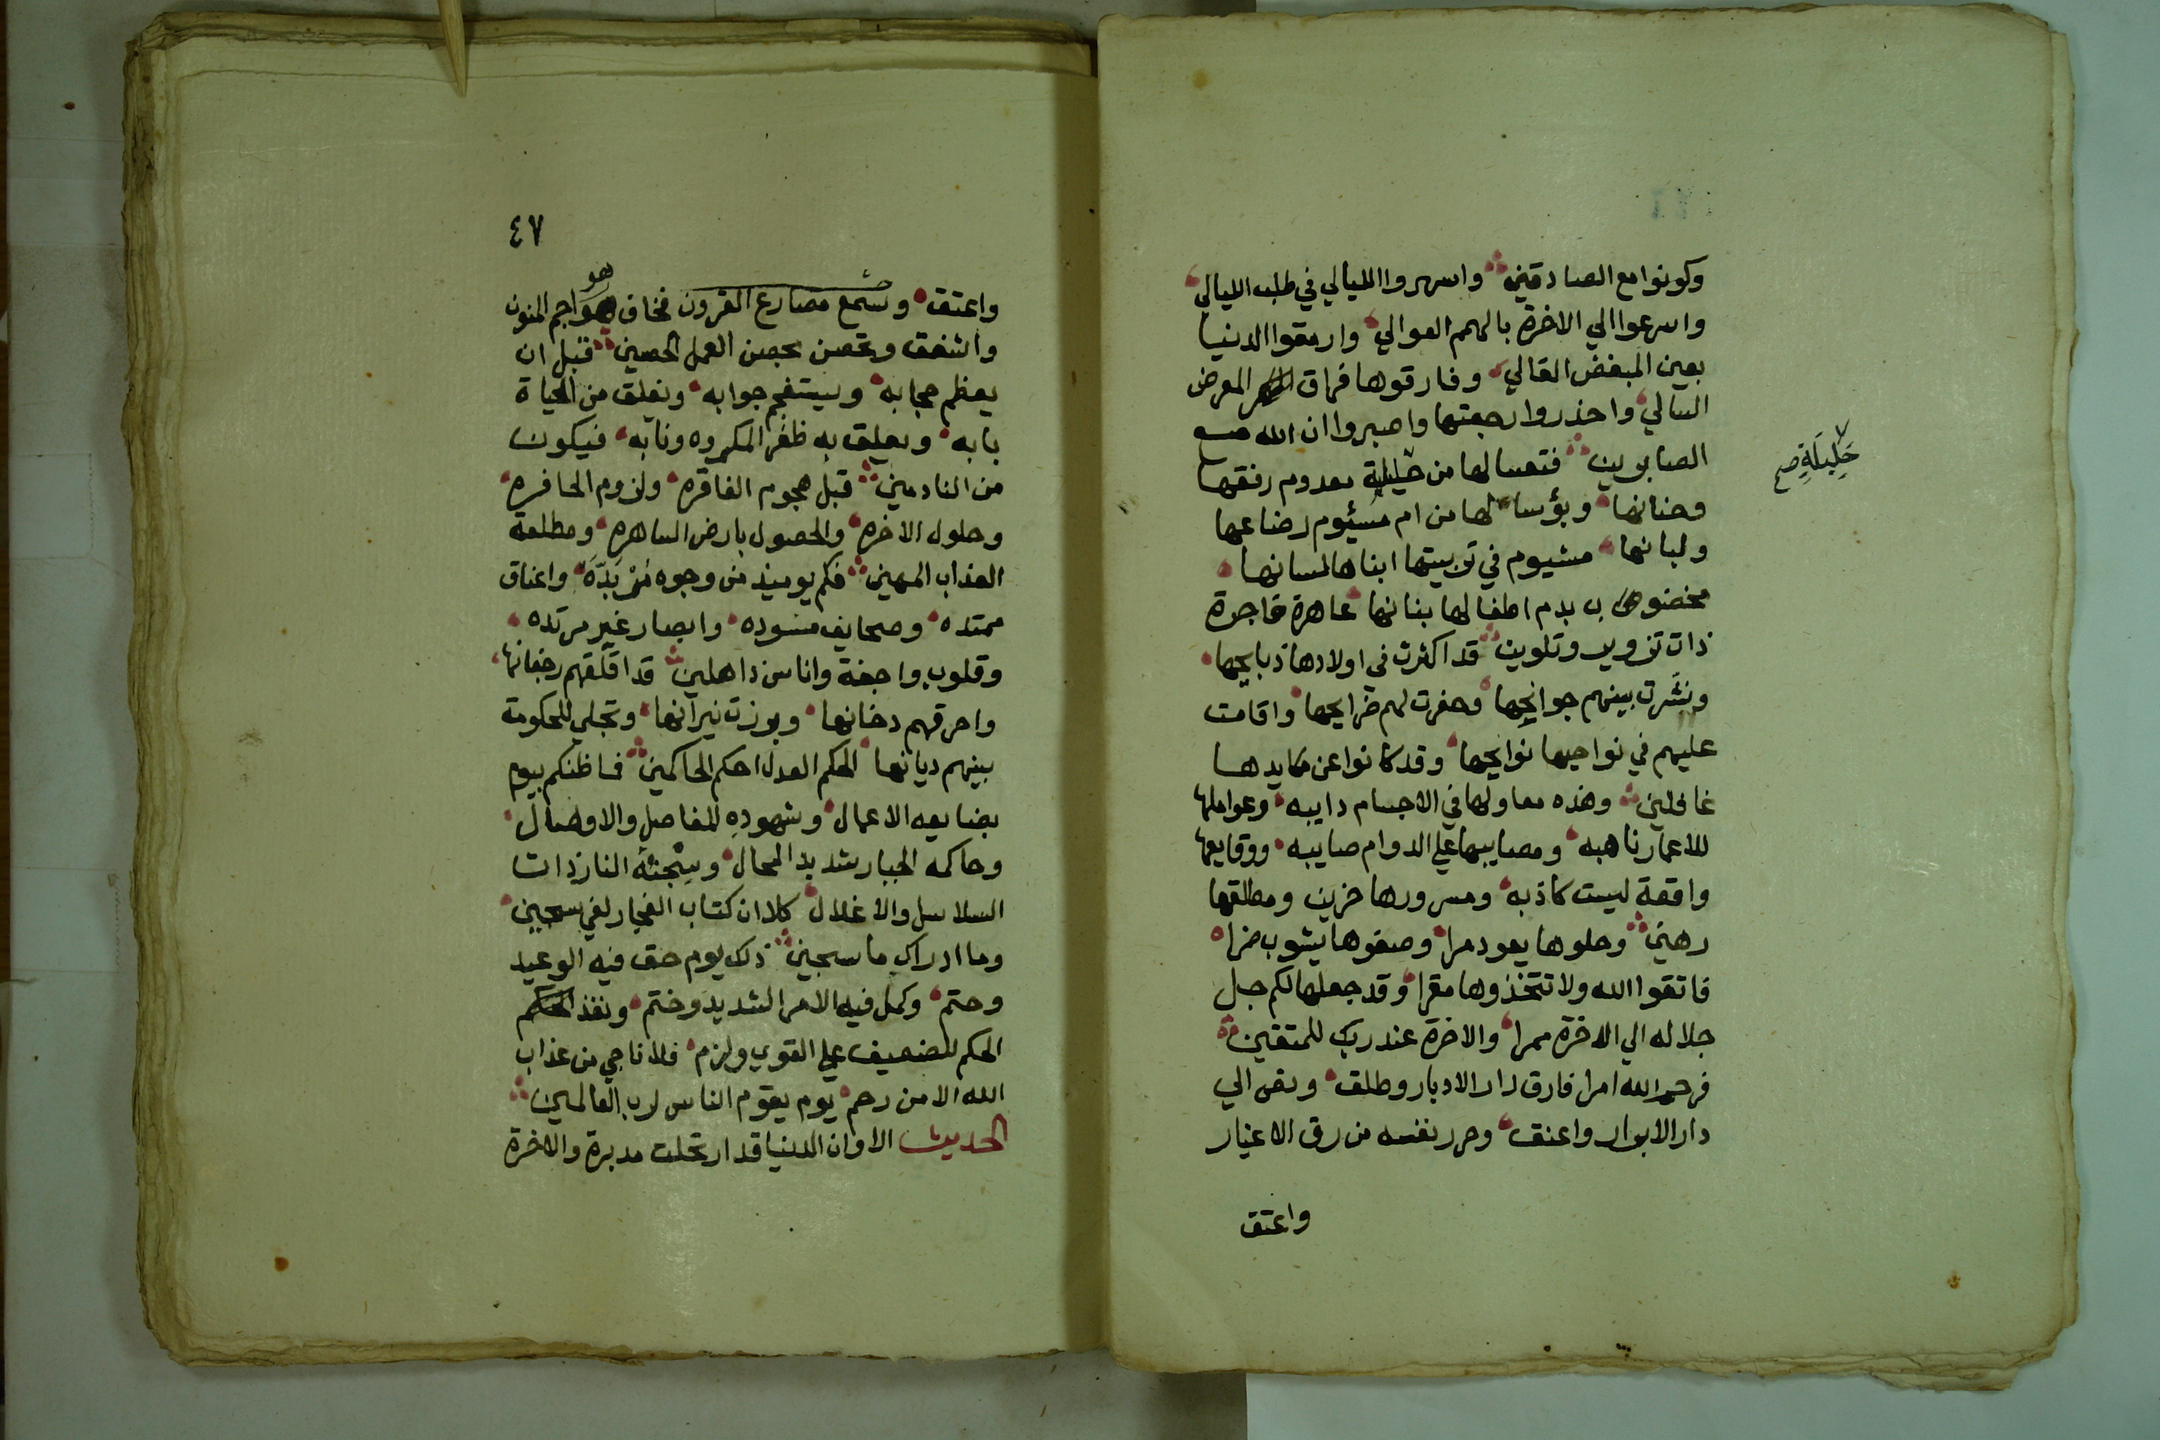 وكونوا مع الصادقين واسهروا الليالي في طلب الليالي
واسرعوا الي الاخرة بالهمم العوالي وارمقوا الدنيا
بعين المبغض القالي وفارقوها فراق المعرض
السالي واحذروا رجعتها واصبروا ان الله مع
الصابرين فتعسا لها من خليلة معدوم رفقها
وحنانها وبؤسا لها من ام مسئوم رضاعها
ولبانها مشيوم في تربيتها ابناها لمسانها
مخضوب بدم اطفالها بنانها عاهرة فاجرة
ذات تزوير وتلوين قد اكثرت في اولادها ذبايحها
ونشرت بينهم جوايحها وحفرت لهم ضرايحها واقامت
عليهم في نواحيها نوايحها وقد كانوا عن مكايدها
غافلين وهذه معاولها في الاجسام دايبه وعواملها
للاعمار ناهبه ومصايبها علي الدوام صايبه ووقايعها
واقعة ليست كاذبه ومسرورها حزين ومطلقها
رهين وحلوها يعود مرا وصفوها يشوب ضرا
فاتقوا الله ولا تتخذوها مقرا وقد جعلها لكم جل
جلاله الي الاخرة ممرا والاخرة عند ربك للمتقين
فرحم الله امرا فارق دار الادبار وطلق وسعى الي
دار الابرار واعنق وحرر نفسه من رق الاغيار
واعتق
خليلة صح
٤٧
واعتق وسمع مصارع القرون فخاف هواجم المنون
هو
واشفق وتحصن بحصن العمل الحصين قبل ان
يعظم حجابه ويستفجم جوابه ونغلق من الحياة
بابه ويعلق به ظفر المكروه ونابه فيكون
من النادمين قبل هجوم الفاقره ولزوم الحافره
وحلول الاخره والحصول بارض الساهره ومطلعة
العذاب المهين فكم يوميذ من وجوه مربده واعناق
ممتده وصحايف مسوده وابصار غير مرتده
وقلوب واجفة واناس ذاهلين قد اقلقهم رجفانها
واحرقهم دخانها وبرزت نيرانها وتجلي للحكومة
بينهم ديانها الحكم العدل احكم الحاكمين فما ظنكم بيوم
بضايعه الاعمال وشهوده المفاصل والاوصال
وحاكمه الجبار شديد المحال وسجنه النار ذات
السلاسل والاغلال كلا ان كتاب الفجار لفي سجين
وما ادراك ما سجين ذلك يوم حق فيه الوعيد
وحتم وكمل فيه الامر الشديد وختم ونفذ
الحكم للضعيف علي القوي ولزم فلا ناجي من عذاب
الله الا من رحم يوم يقوم الناس لرب العالمين
الحديث الا وان الدنيا قد ارتحلت مدبرة والاخرة